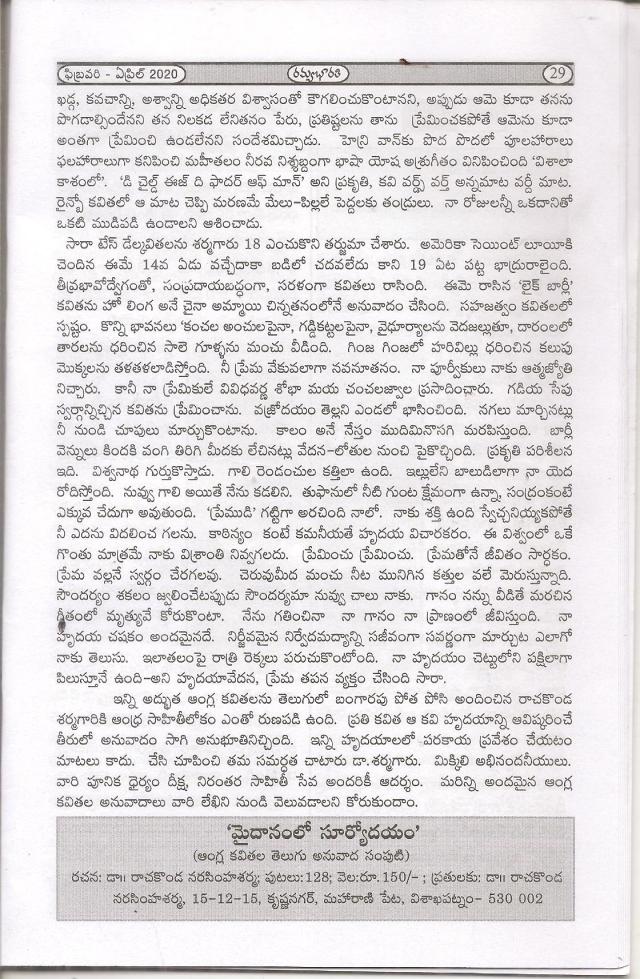 ఫిబ్రవరి - ఏప్రిల్ 2020
రమ్యభారతి
29
ఖడ్గ, కవచాన్ని, అశ్వాన్ని అధికతర విశ్వాసంతో కౌగలించుకొంటానని, అప్పుడు ఆమె కూడా తనను
పొగడాల్సిందేనని తన నిలకడ లేనితనం పేరు, ప్రతిష్టలను తాను ప్రేమించకపోతే ఆమెను కూడా
అంతగా ప్రేమించి ఉండలేనని సందేశమిచ్చాడు. హెన్రి వాన్‌కు పొద పొదలో పూలహారాలు
ఫలహారాలుగా కనిపించి మహీతలం నీరవ నిశ్శబ్దంగా భాషా యోష అశ్రుగీతం వినిపించింది ‘విశాలా
కాశంలో’. ‘డి చైల్డ్ ఈజ్ ది ఫాదర్ ఆఫ్ మాన్’ అని ప్రకృతి, కవి వర్డ్స్ వర్త్ అన్నమాట వర్దీ మాట.
రైన్బో కవితలో ఆ మాట చెప్పి మరణమే మేలు-పిల్లలే పెద్దలకు తండ్రులు. నా రోజులన్నీ ఒకదానితో
ఒకటి ముడిపడి ఉండాలని ఆశించాడు.
సారా టీస్ డేల్కవితలను శర్మగారు 18 ఎంచుకొని తర్జుమా చేశారు. అమెరికా సెయింట్ లూయీకి
చెందిన ఈమే 14వ ఏడు వచ్చేదాకా బడిలో చదవలేదు కాని 19 ఏట పట్ట భాద్రురాలైంది.
తీవ్రభావోద్వేగంతో, సంప్రదాయబద్ధంగా, సరళంగా కవితలు రాసింది. ఈమె రాసిన ‘లైక్ బార్లీ’
కవితను హో లింగ అనే చైనా అమ్మాయి చిన్నతనంలోనే అనువాదం చేసింది. సహజత్వం కవితలలో
స్పష్టం. కొన్ని భావనలు ‘కంచల అంచులపైనా, గడ్డికట్టలపైనా, వైఢూర్యాలను వెదజల్లుతూ, దారంలలో
తారలను ధరించిన సాలె గూళ్ళను మంచు వీడింది. గింజ గింజలో హరివిల్లు ధరించిన కలుపు
మొక్కలను తళతళలాడిస్తోంది. నీ ప్రేమ వేకువలాగా నవనూతనం. నా పూర్వీకులు నాకు ఆత్మజ్యోతి
నిచ్చారు. కానీ నా ప్రేమికులే వివిధవర్ణ శోభా మయ చంచలజ్వాల ప్రసాదించారు. గడియ సేపు
స్వర్గాన్నిచ్చిన కవితను ప్రేమించాను. వజ్రోదయం తెల్లని ఎండలో భాసించింది. నగలు మార్చినట్లు
నీ నుండి చూపులు మార్చుకొంటాను. కాలం అనే నేస్తం ముదిమినొసగి మరపిస్తుంది. బార్లీ
వెన్నులు కిందకి వంగి తిరిగి మీదకు లేచినట్లు వేదన-లోతుల నుంచి పైకొచ్చింది. ప్రకృతి పరిశీలన
ఇది. విశ్వనాథ గుర్తుకొస్తాడు. గాలి రెండంచుల కత్తిలా ఉంది. ఇల్లులేని బాలుడిలాగా నా యెద
రోదిస్తోంది. నువ్వు గాలి అయితే నేను కడలిని. తుఫానులో నీటి గుంట క్షేమంగా ఉన్నా, సంద్రంకంటే
ఎక్కువ చేదుగా అవుతుంది. ‘ప్రేముడి’ గట్టిగా అరచింది నాలో. నాకు శక్తి ఉంది స్వేచ్ఛనియ్యకపోతే
నీ ఎదను విదలించ గలను. కాఠిన్యం కంటే కమనీయతే హృదయ విచారకరం. ఈ విశ్వంలో ఒకే
గొంతు మాత్రమే నాకు విశ్రాంతి నివ్వగలదు. ప్రేమించు ప్రేమించు. ప్రేమతోనే జీవితం సార్ధకం.
ప్రేమ వల్లనే స్వర్గం చేరగలవు. చెరువుమీద మంచు నీట మునిగిన కత్తుల వలే మెరుస్తున్నాది.
సౌందర్యం శకలం జ్వలించేటప్పుడు సౌందర్యమా నువ్వు చాలు నాకు. గానం నన్ను వీడితే మరచిన
గీతంలో మృత్యువే కోరుకొంటా. నేను గతించినా నా గానం నా ప్రాణంలో జీవిస్తుంది. నా
హృదయ చషకం అందమైనదే. నిర్జీవమైన నిర్వేదమద్యాన్ని సజీవంగా సవర్ణంగా మార్చుట ఎలాగో
నాకు తెలుసు. ఇలాతలంపై రాత్రి రెక్కలు పరుచుకొంటోంది. నా హృదయం చెట్టులోని పక్షిలాగా
పిలుస్తూనే ఉంది-అని హృదయావేదన, ప్రేమ తపన వ్యక్తం చేసింది సారా.
ఇన్ని అద్భుత ఆంగ్ల కవితలను తెలుగులో బంగారపు పోత పోసి అందించిన రాచకొండ
శర్మగారికి ఆంధ్ర సాహితీలోకం ఎంతో రుణపడి ఉంది. ప్రతి కవిత ఆ కవి హృదయాన్ని ఆవిష్కరించే
తీరులో అనువాదం సాగి అనుభూతినిచ్చింది. ఇన్ని హృదయాలలో పరకాయ ప్రవేశం చేయటం
మాటలు కాదు. చేసి చూపించి తమ సమర్ధత చాటారు డా.శర్మగారు. మిక్కిలి అభినందనీయులు.
వారి పూనిక ధైర్యం దీక్ష, నిరంతర సాహితీ సేవ అందరికీ ఆదర్శం. మరిన్ని అందమైన ఆంగ్ల
కవితల అనువాదాలు వారి లేఖిని నుండి వెలువడాలని కోరుకుందాం.
‘మైదానంలో సూర్యోదయం’
(ఆంగ్ల కవితల తెలుగు అనువాద సంపుటి)
రచన: డా॥ రాచకొండ నరసింహశర్మ; పుటలు:128; వెల:రూ.150/- ; ప్రతులకు: డా॥ రాచకొండ
నరసింహశర్మ, 15-12-15, కృష్ణనగర్, మహారాణి పేట, విశాఖపట్నం- 530 002